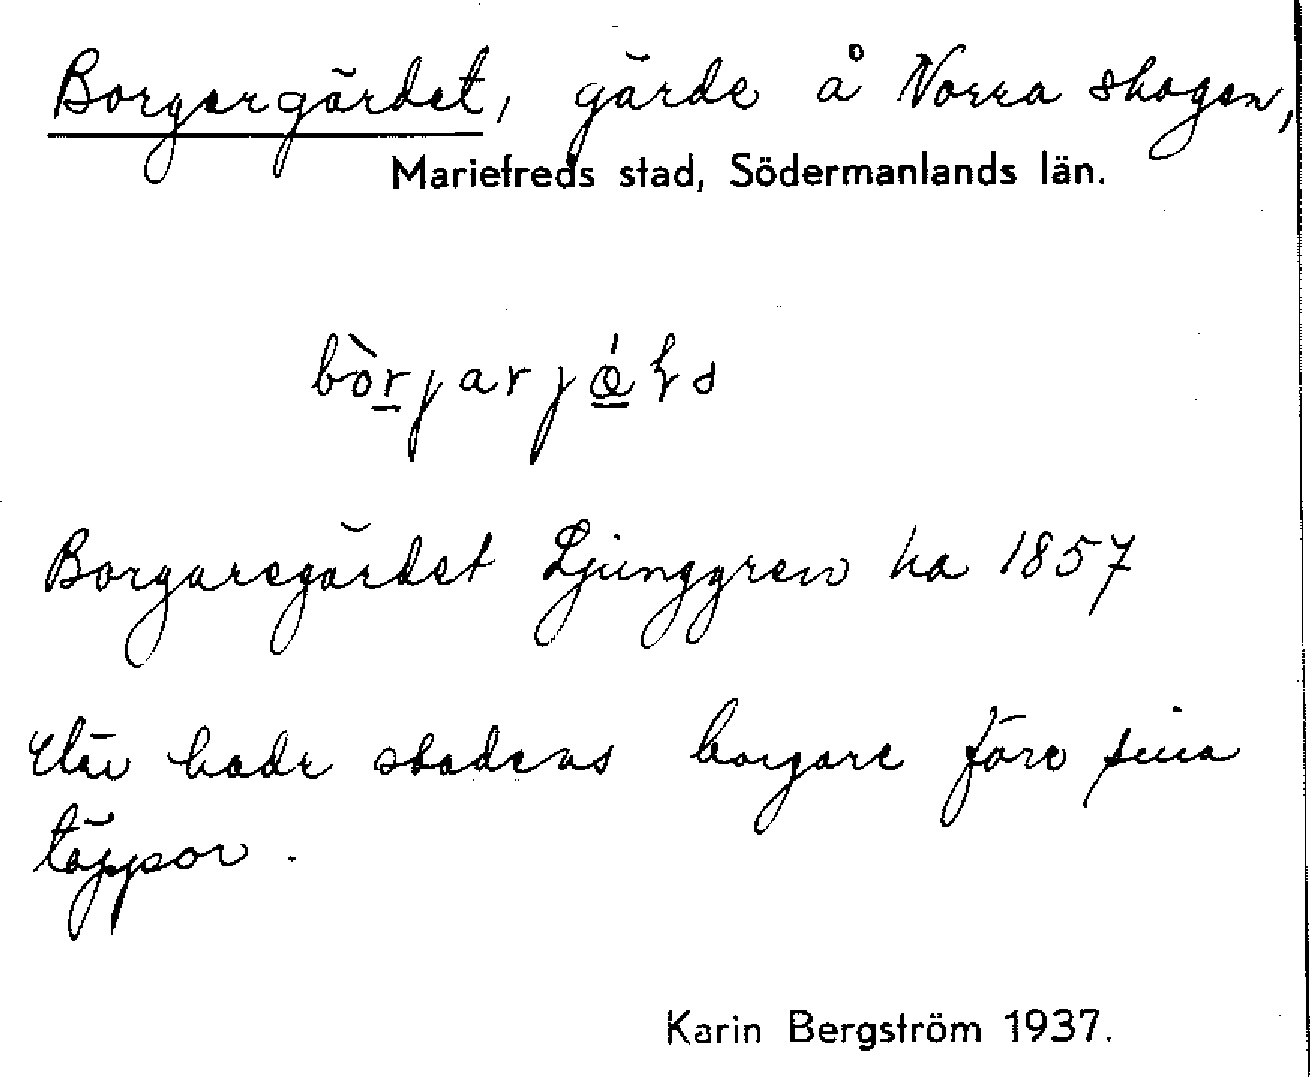 Borgargärdet, gärde å Norra skogen,
Mariefreds stad, Södermanlands län.
Borgaregärdet Ljunggren ha 1857
Här hade stadens borgare förr sina
täppor.
Karin Bergström 1937.